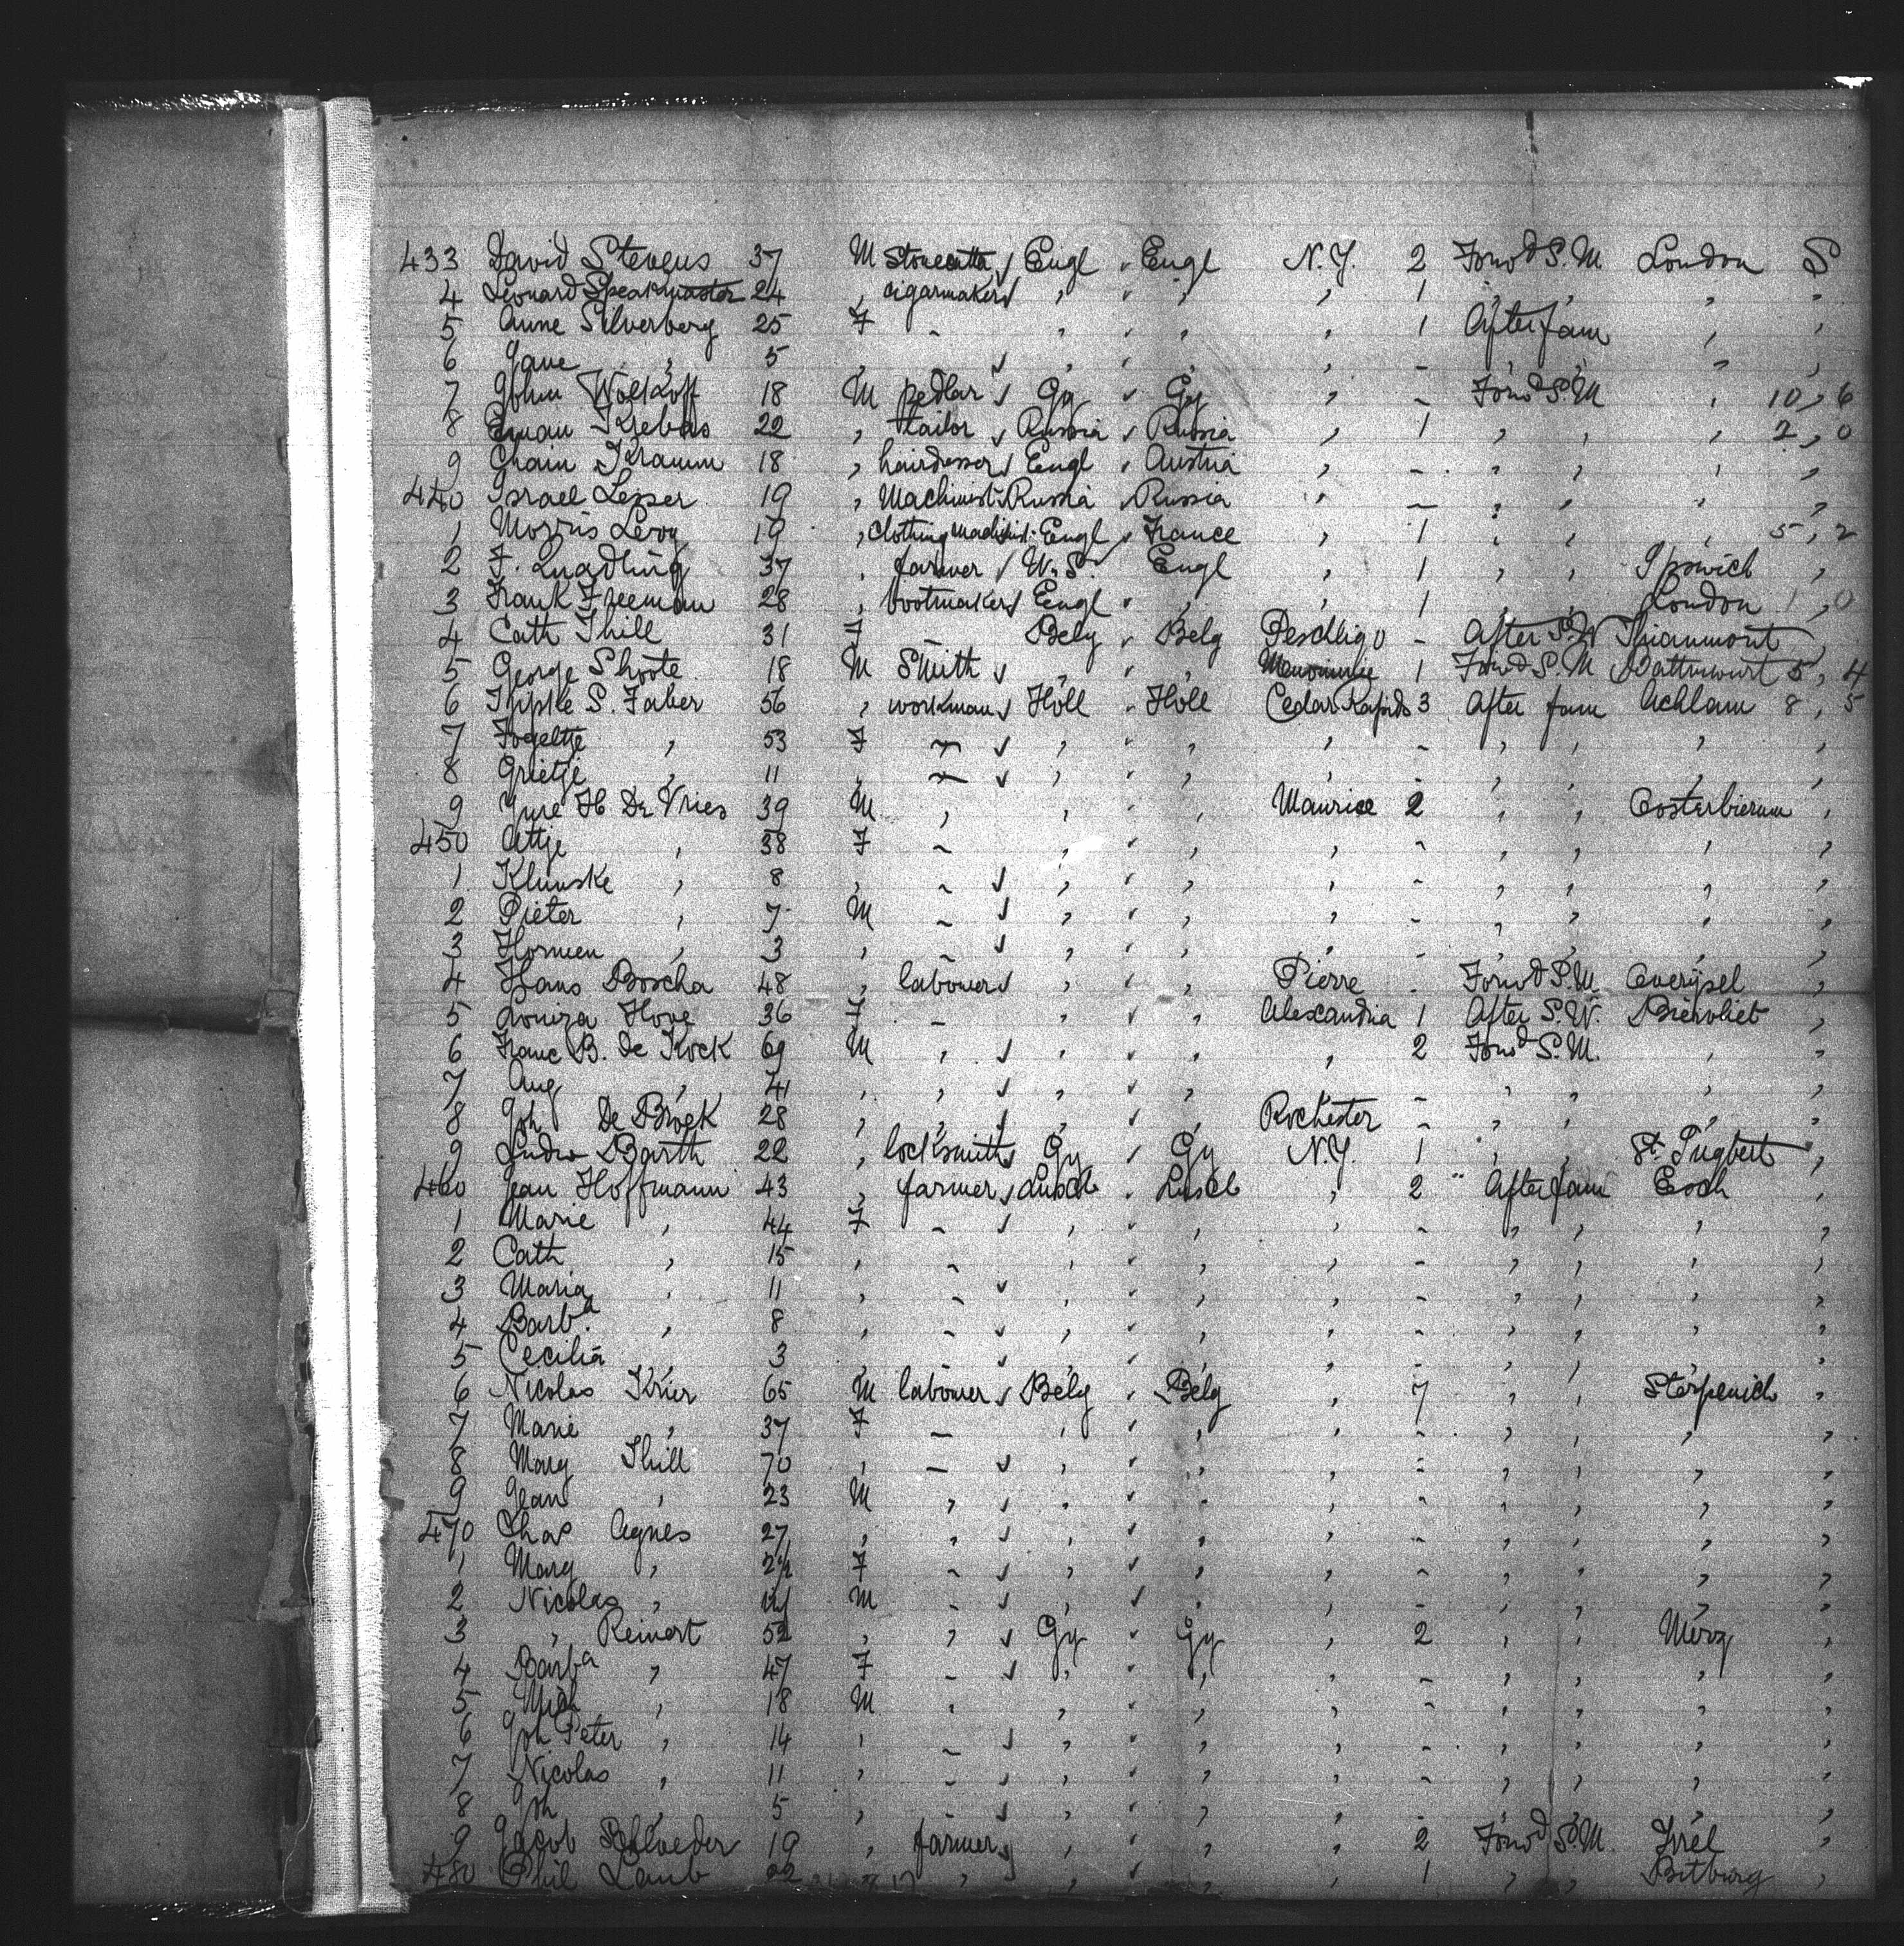 433 David Stevens 37 M Stonecutter Engl Engl N.Y. 2 Forwd S.M London S
4 Leonard Speakmaster 24 , cigarmaker , , , 1 , , , ,
5 Anne Silverberg 25 F - , , , 1 After fam , ,
6 Jane , 5 , , , , - , , , ,
7 John Wolkoff 18 M pedlar Gy Gy , - Forwd S.M , 10, 6
8 Krebas 22 , tailor Russia Russia , 1 , , , 2, 0
9 Chaim Kramm 18 , hairdresser Engl Austria , - , , , ,
440 Israel Lesser 19 , Machinist Russia Russia , - , , , ,
1 Morris Levy 19 , Clothing Machinist Engl France , 1 , , , 5, 2
2 F. Quadling 37 , farmer U.S. Engl , 1 , , Ipswich ,
3 Frank Freeman 28 , bootmaker Engl , , 1 , , London 1, 0
4 Cath Thill 31 F - Belg Belg Peschtigo - After S.W Thiaumont ,
5 George Shoote 18 M Smith , , Menominee 1 Forwd S.M 5, 4
6 Tjipke S. Faber 56 , workman Holl Holl Cedar Rapids 3 After fam Achlum 8, 5
7 Fogeltje , 53 F - , , , - , , , ,
8 Grietje , 11 , - , , , - , , , ,
9 H De Vries 39 M , , , Maurice 2 , , Oosterbierum ,
450 Attje , 38 F - , , , - , , , ,
1 Klunske , 8 , - , , , - , , , ,
2 Pieter , 7 M - , , , - , , , ,
3 , 3 , - , , , - , , , ,
4 Hans Boscha 48 , labourer , , Pierre - Forwd S.M. Overijsel ,
5 Louiza Hove 36 F - , , Alexandria 1 After S.W. Biervliet ,
6 Franc B. de Kock 69 M , , , , 2 Forwd S.M. , ,
7 Aug , 41 , , , , , - , , , ,
8 Joh De Broek 28 , , , , Rochester - , , , ,
9 Ludw Barth 22 , locksmith Gy Gy N.Y. 1 , , St. Ingbert ,
460 Jean Hoffmann 43 , farmer Luxb Luxb , 2 After fam Esch ,
1 Marie , 44 F - , , , - , , , ,
2 Cath , 15 , - , , , - , , , ,
3 Maria , 11 , - , , , - , , , ,
4 Barba , 8 , - , , , - , , , ,
5 Cecilia , 3 , - , , , - , , , ,
6 Nicolas Krier 65 M labourer Belg Belg , 7 , , Sterpenich ,
7 Marie , 37 F - , , , - , , , ,
8 Marg Thill 70 , - , , , - , , , ,
9 Jean , 23 M , , , , - , , , ,
470 Chas Agnes 27 , , , , , - , , , ,
1 Marg , F - , , , - , , , ,
2 Nicolas , M - , , , - , , , ,
3 , Reinert 52 , , Gy Gy , 2 , , Merz ,
4 Barba , 47 F - , , , - , , , ,
5 Mich , 18 M , , , , - , , , ,
6 Joh Peter , 14 , - , , , - , , , ,
7 Nicolas , 11 , - , , , - , , , ,
8 Joh , 5 , - , , , - , , , ,
9 Jacob Schloeder 19 , farmer , , , 2 Forwd S.M. Irrel ,
480 Phil Laub 22 , , , , 1 , , Bitburg ,